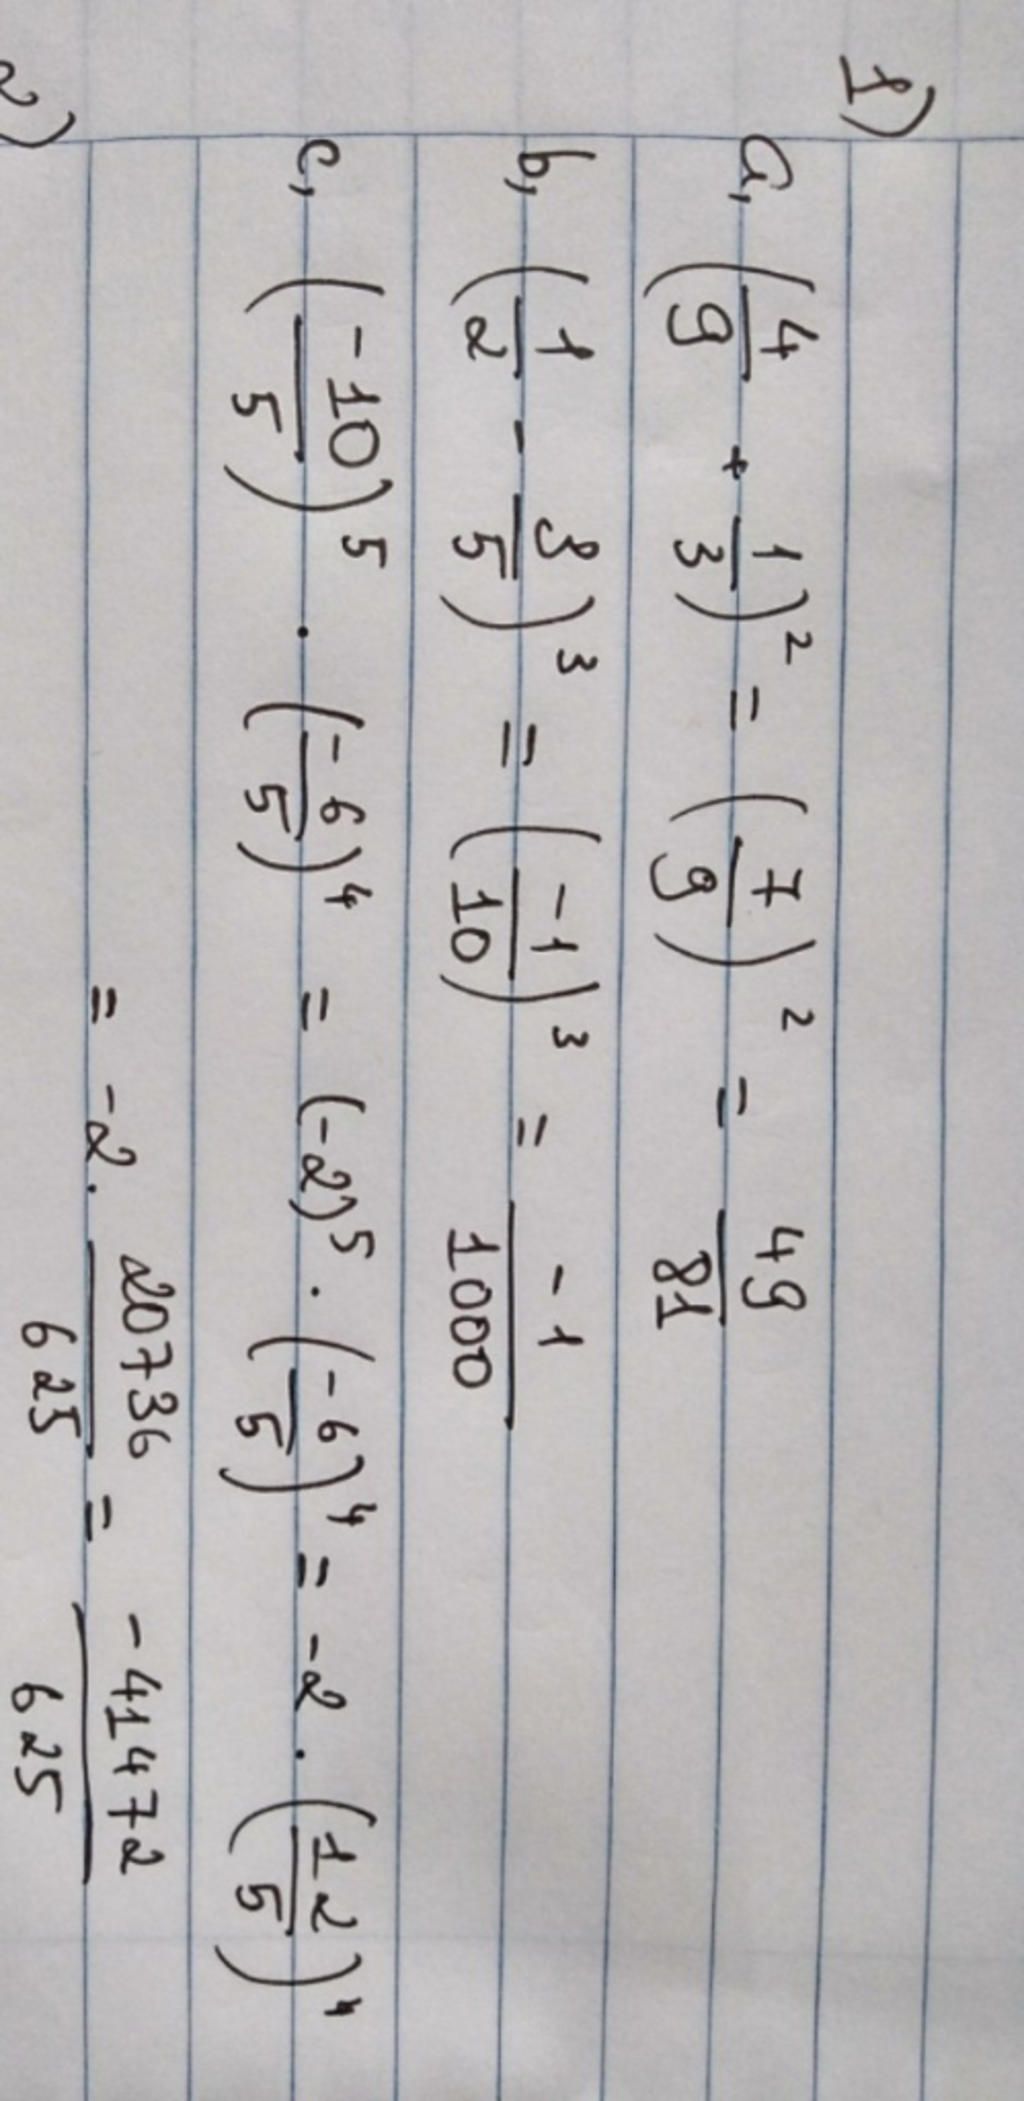 1)
a, (4/9 + 1/3)² = (7/9)² = 49/81
b, (1/2 - 3/5)³ = (-1/10)³ = -1/1000
c, (-10/5)⁵ . (-6/5)⁴ = (-2)⁵ . (-6/5)⁴ = -2 . (12/5)⁴
= -2 . 20736/625 = -41472/625
2)